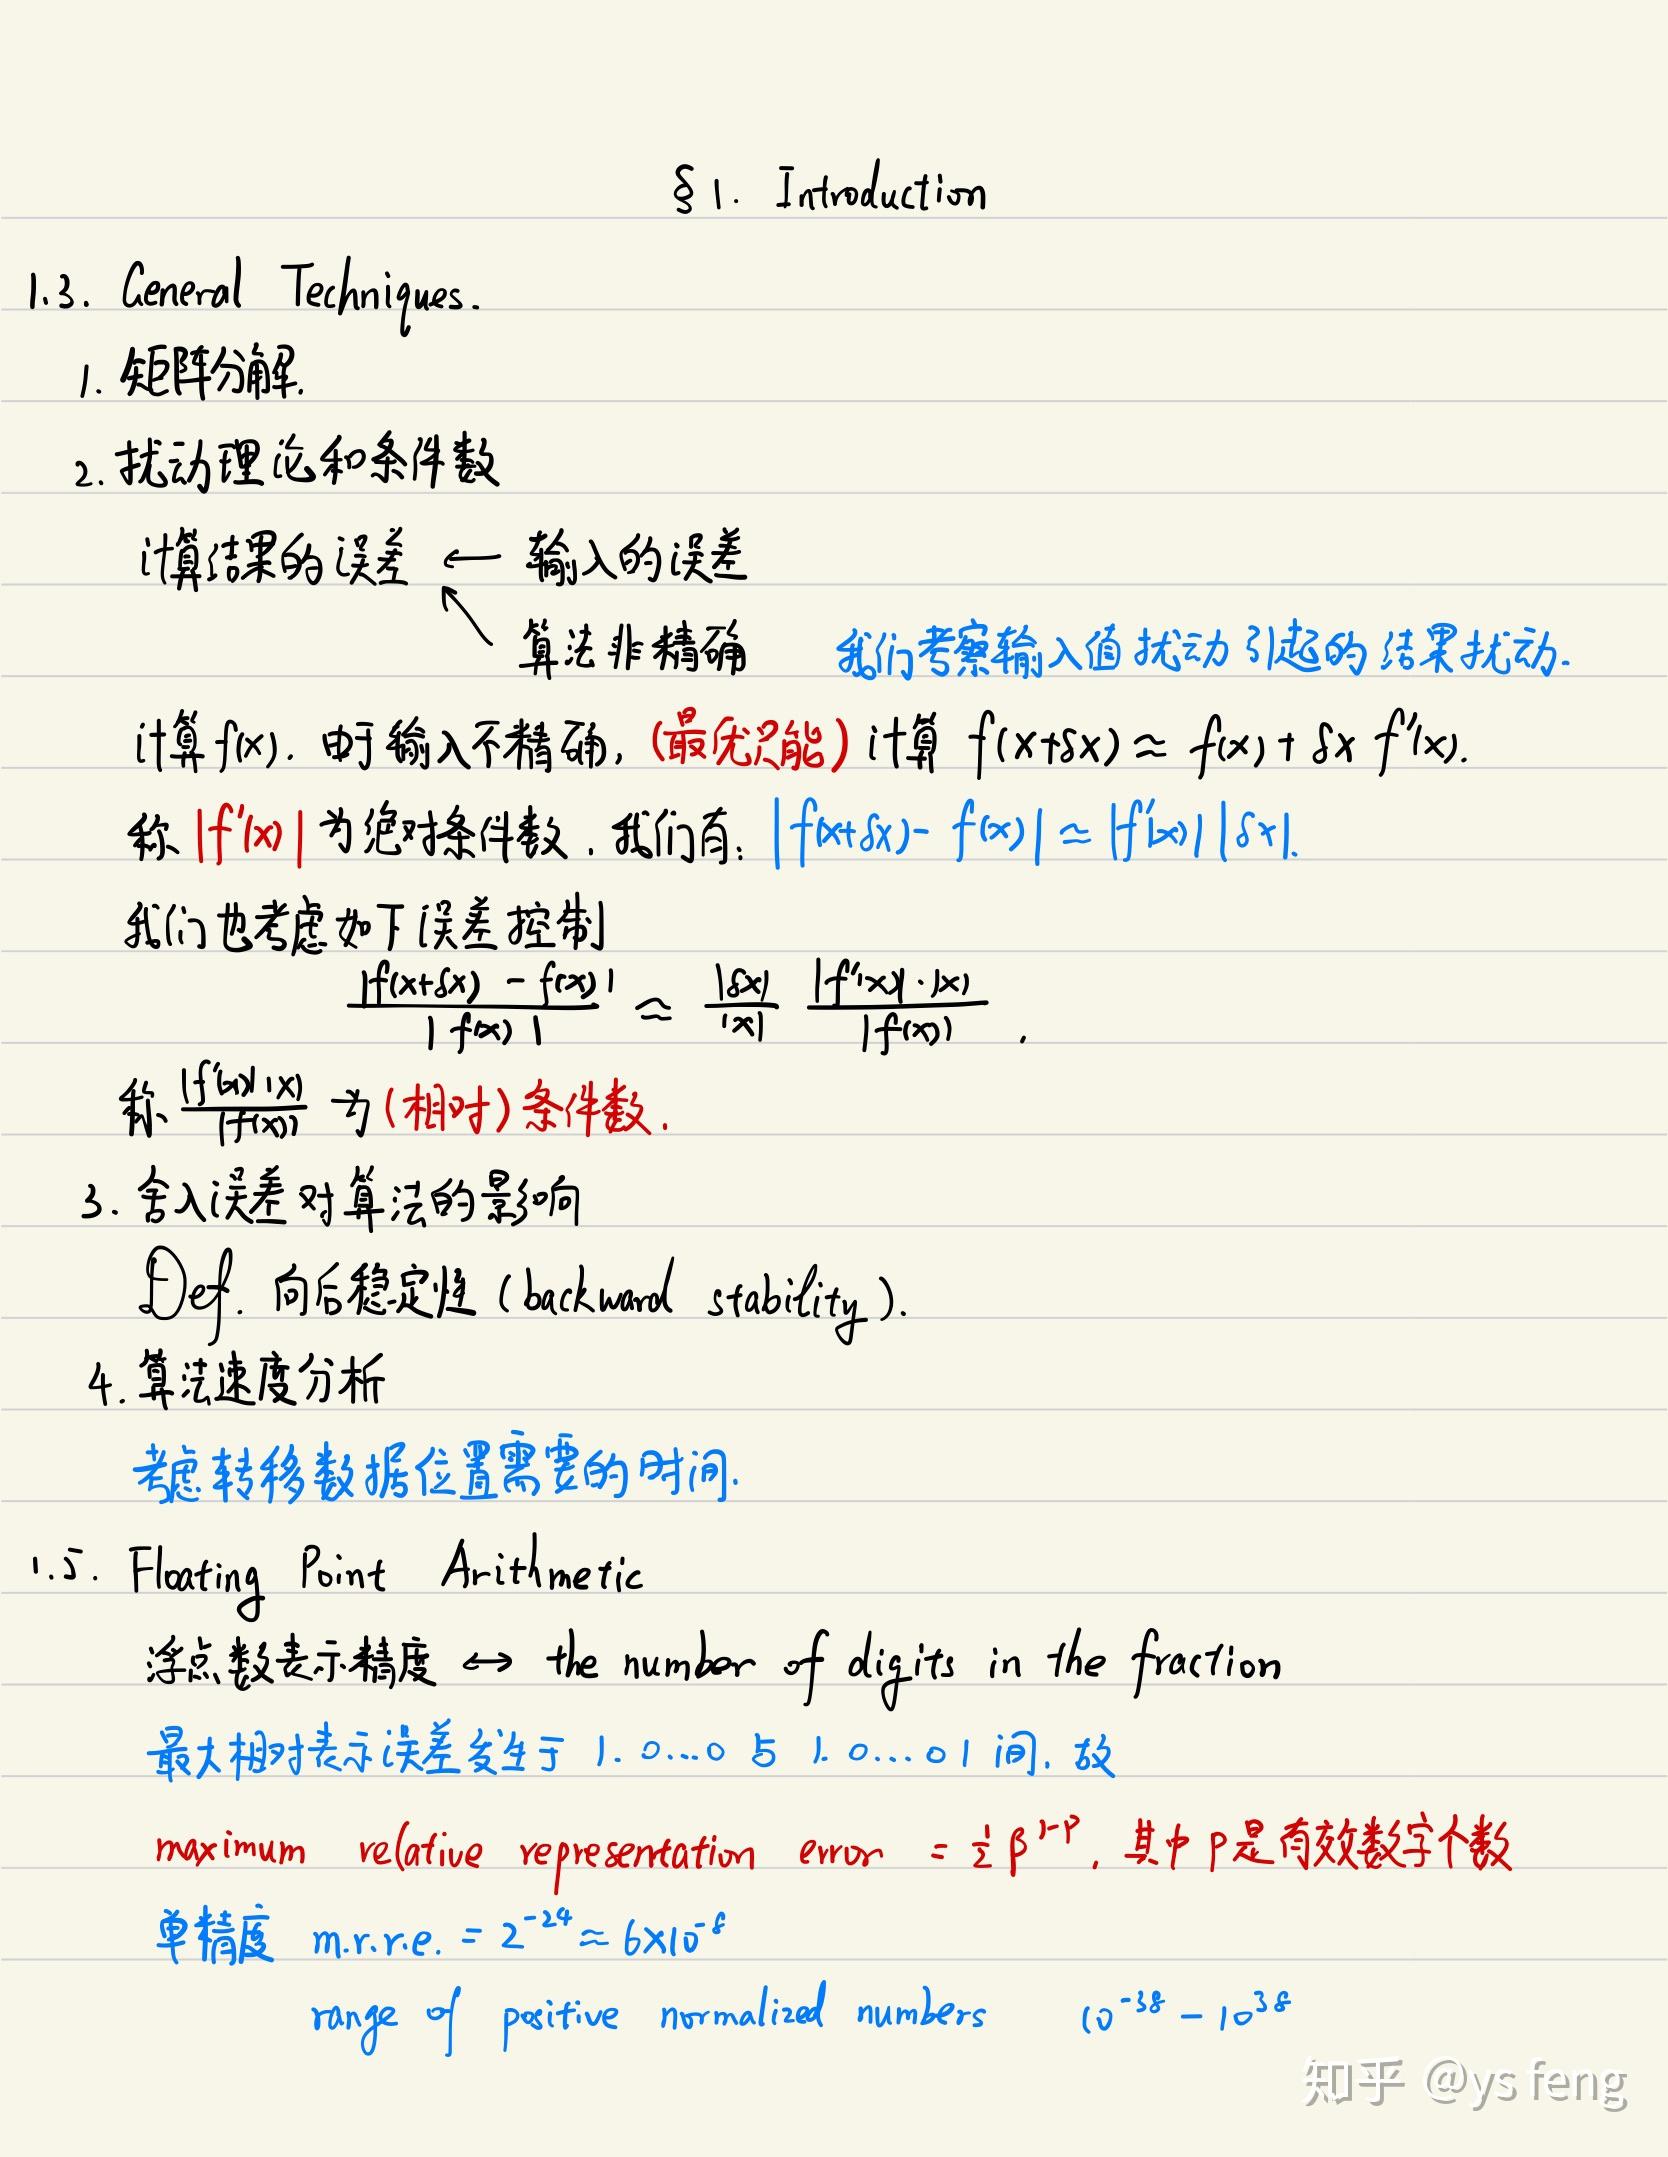 § 1. Introduction
1.3. General Techniques.
1. 矩阵分解.
2. 扰动理论和条件数
计算结果的误差 ← 输入的误差
↖ 算法非精确 我们考察输入值扰动引起的结果扰动.
计算 f(x). 由于输入不精确, (最优只能) 计算 f(x+δx) ≈ f(x) + δx f'(x).
称 |f'(x)| 为绝对条件数. 我们有: |f(x+δx) - f(x)| ≈ |f'(x)| |δx|.
我们也考虑如下误差控制
|f(x+δx) - f(x)| / |f(x)| ≈ |δx| / |x| |f'(x)|·|x| / |f(x)| .
称 |f'(x)||x| / |f(x)| 为 (相对) 条件数.
3. 舍入误差对算法的影响
Def. 向后稳定性 (backward stability).
4. 算法速度分析
考虑转移数据位置需要的时间.
1.5. Floating Point Arithmetic
浮点数表示精度 ↔ the number of digits in the fraction
最大相对表示误差发生于 1.0...0 与 1.0...01 间. 故
maximum relative representation error = 1/2 β^{1-p}, 其中 p 是有效数字个数
单精度 m.r.r.e. = 2^{-24} ≈ 6×10^{-8}
range of positive normalized numbers 10^{-38} - 10^{38}
知乎 @ys feng